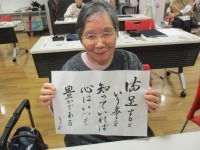 満足すると
いう事を
知っていれば
心はいつも
豊かである